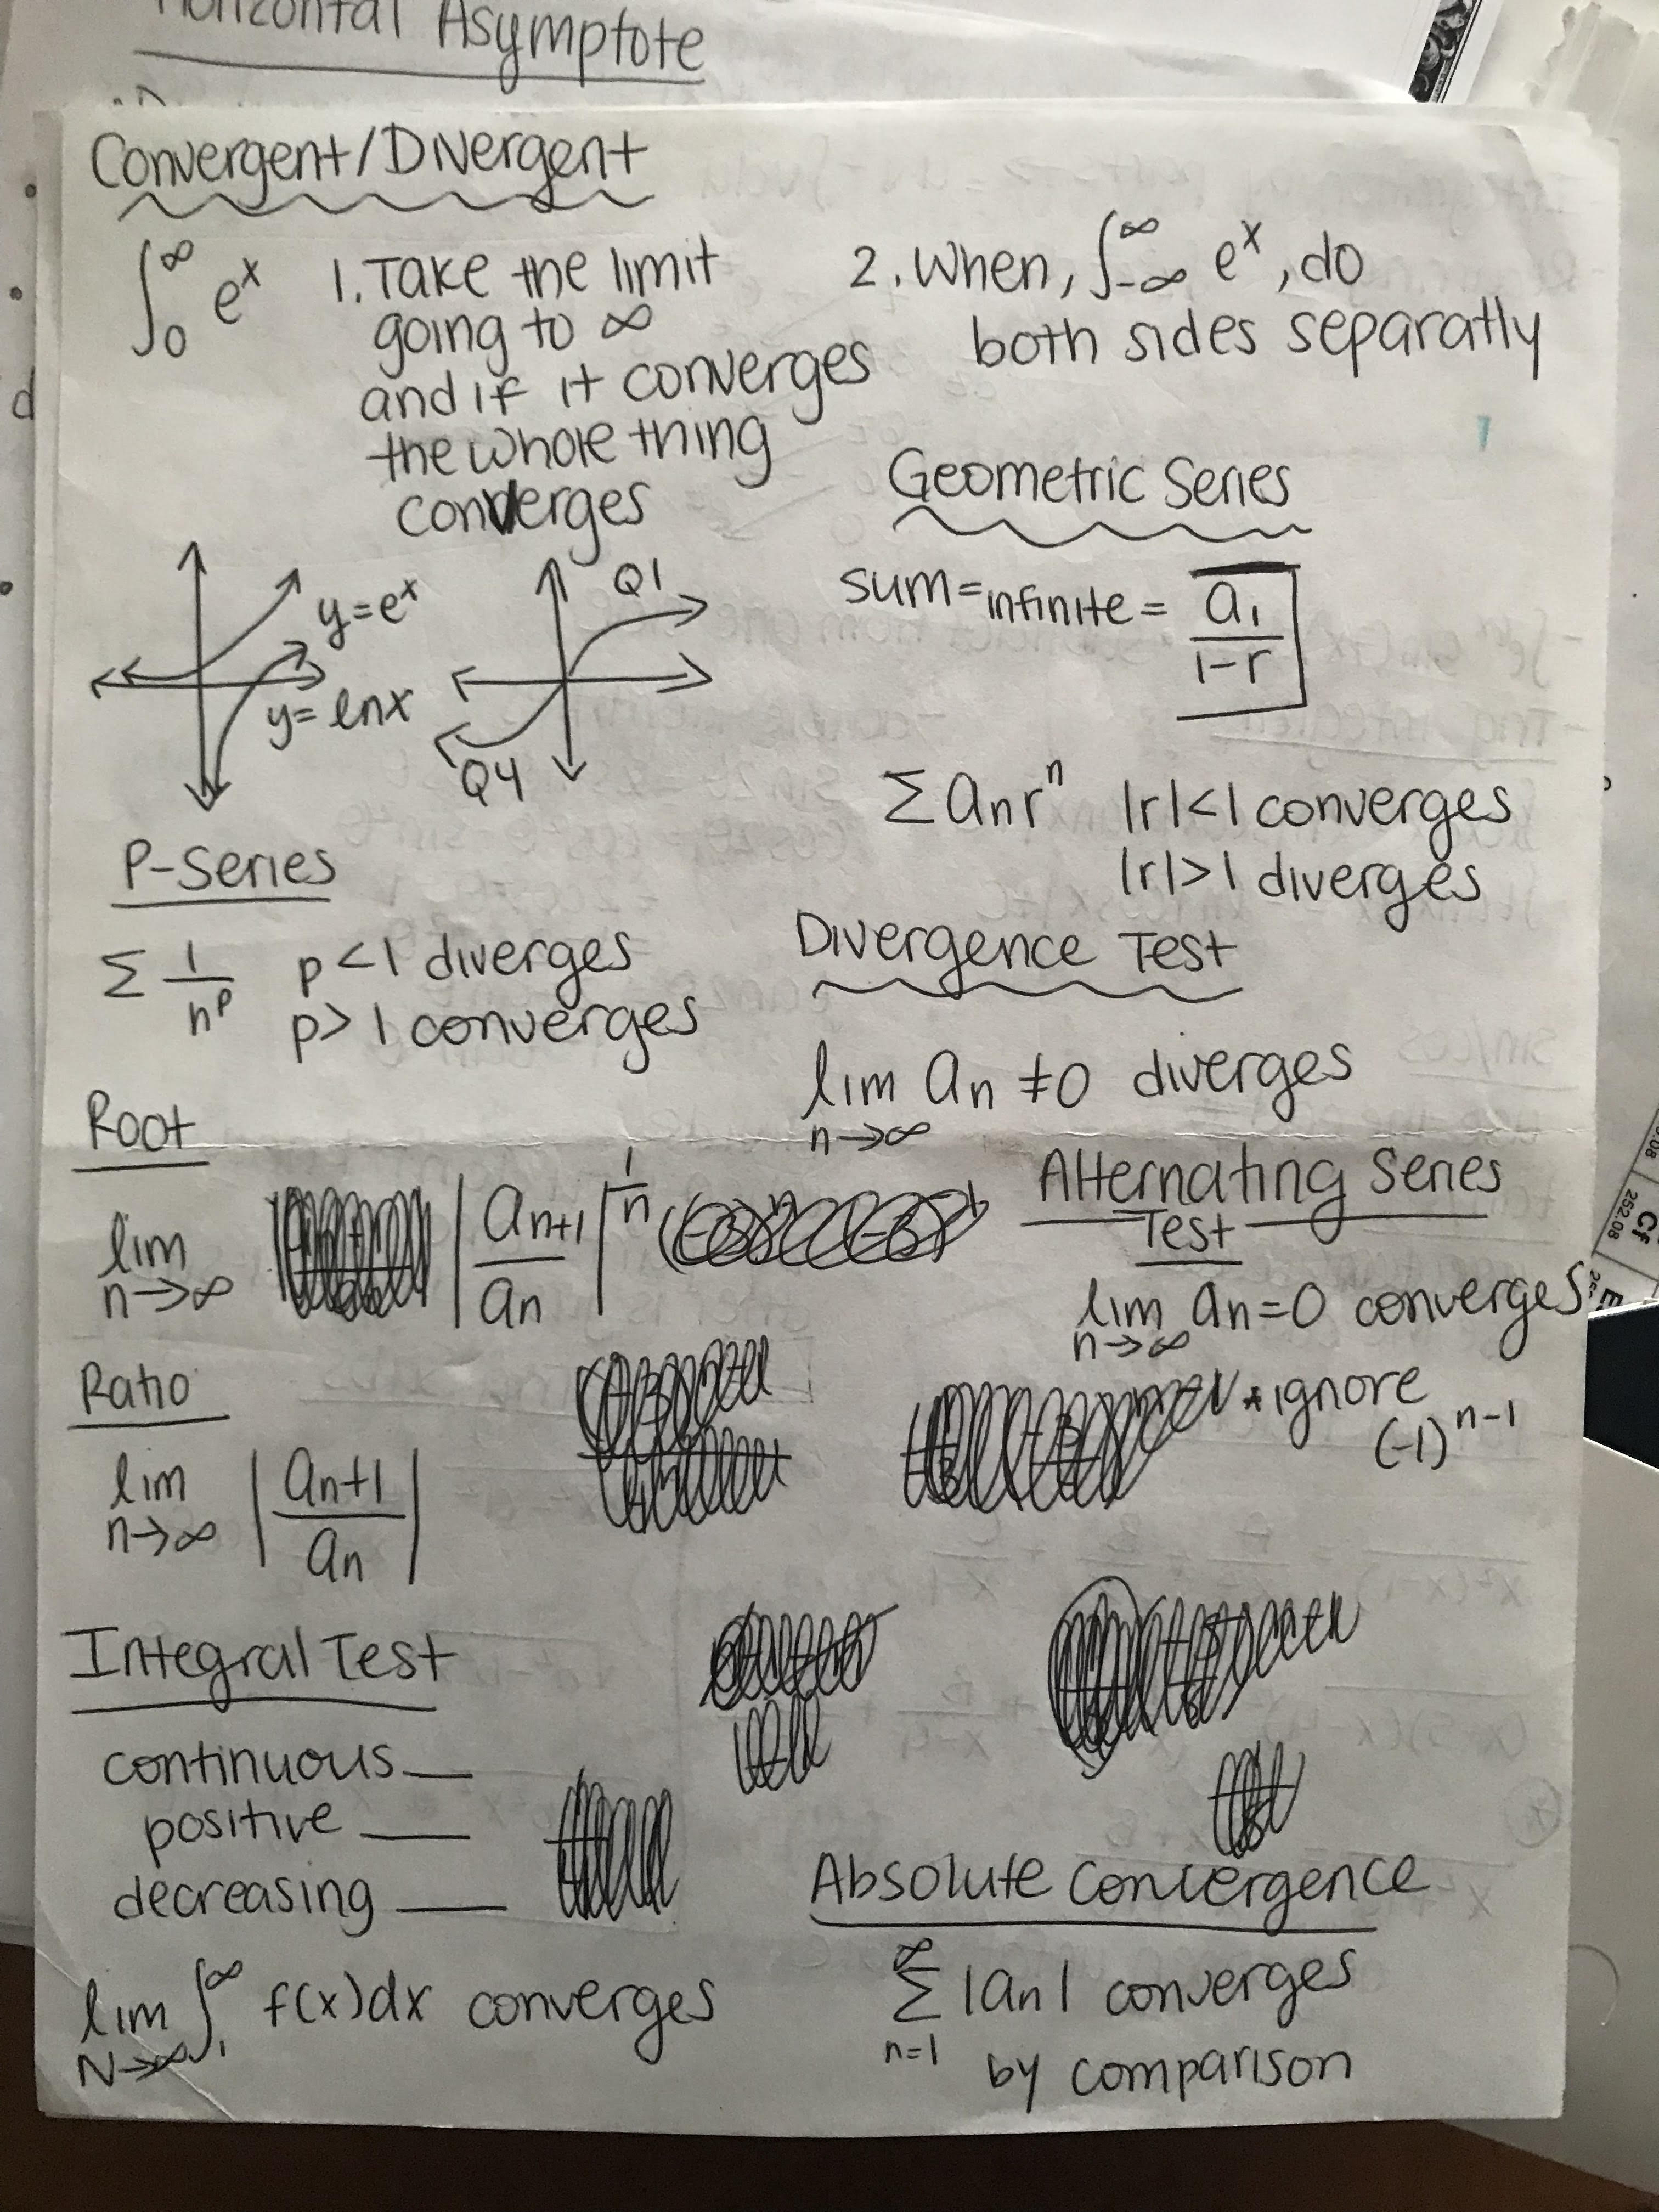 Horizontal Asymptote
Convergent/Divergent
∫₀^∞ eˣ
1. Take the limit
going to ∞
and if it converges
the whole thing
converges
2. When, ∫₋∞^∞ eˣ, do
both sides separatly
y=eˣ
y=lnx
Q1
Q4
Geometric Series
sum=infinite= a₁/(1-r)
Σ aₙrⁿ |r|<1 converges
|r|>1 diverges
P-Series
Σ 1/nᵖ p<1 diverges
p>1 converges
Divergence Test
lim n→∞ aₙ ≠0 diverges
Root
lim n→∞ |aₙ₊₁/aₙ|^(1/n)
Alternating Series
Test
lim n→∞ aₙ=0 converges
*ignore
(-1)ⁿ⁻¹
Ratio
lim n→∞ |aₙ₊₁/aₙ|
Integral Test
continuous __
positive __
decreasing __
lim N→∞ ∫₁^∞ f(x)dx converges
Absolute Convergence
Σ n=1 ^∞ |aₙ| converges
by comparison
252.08
Cf